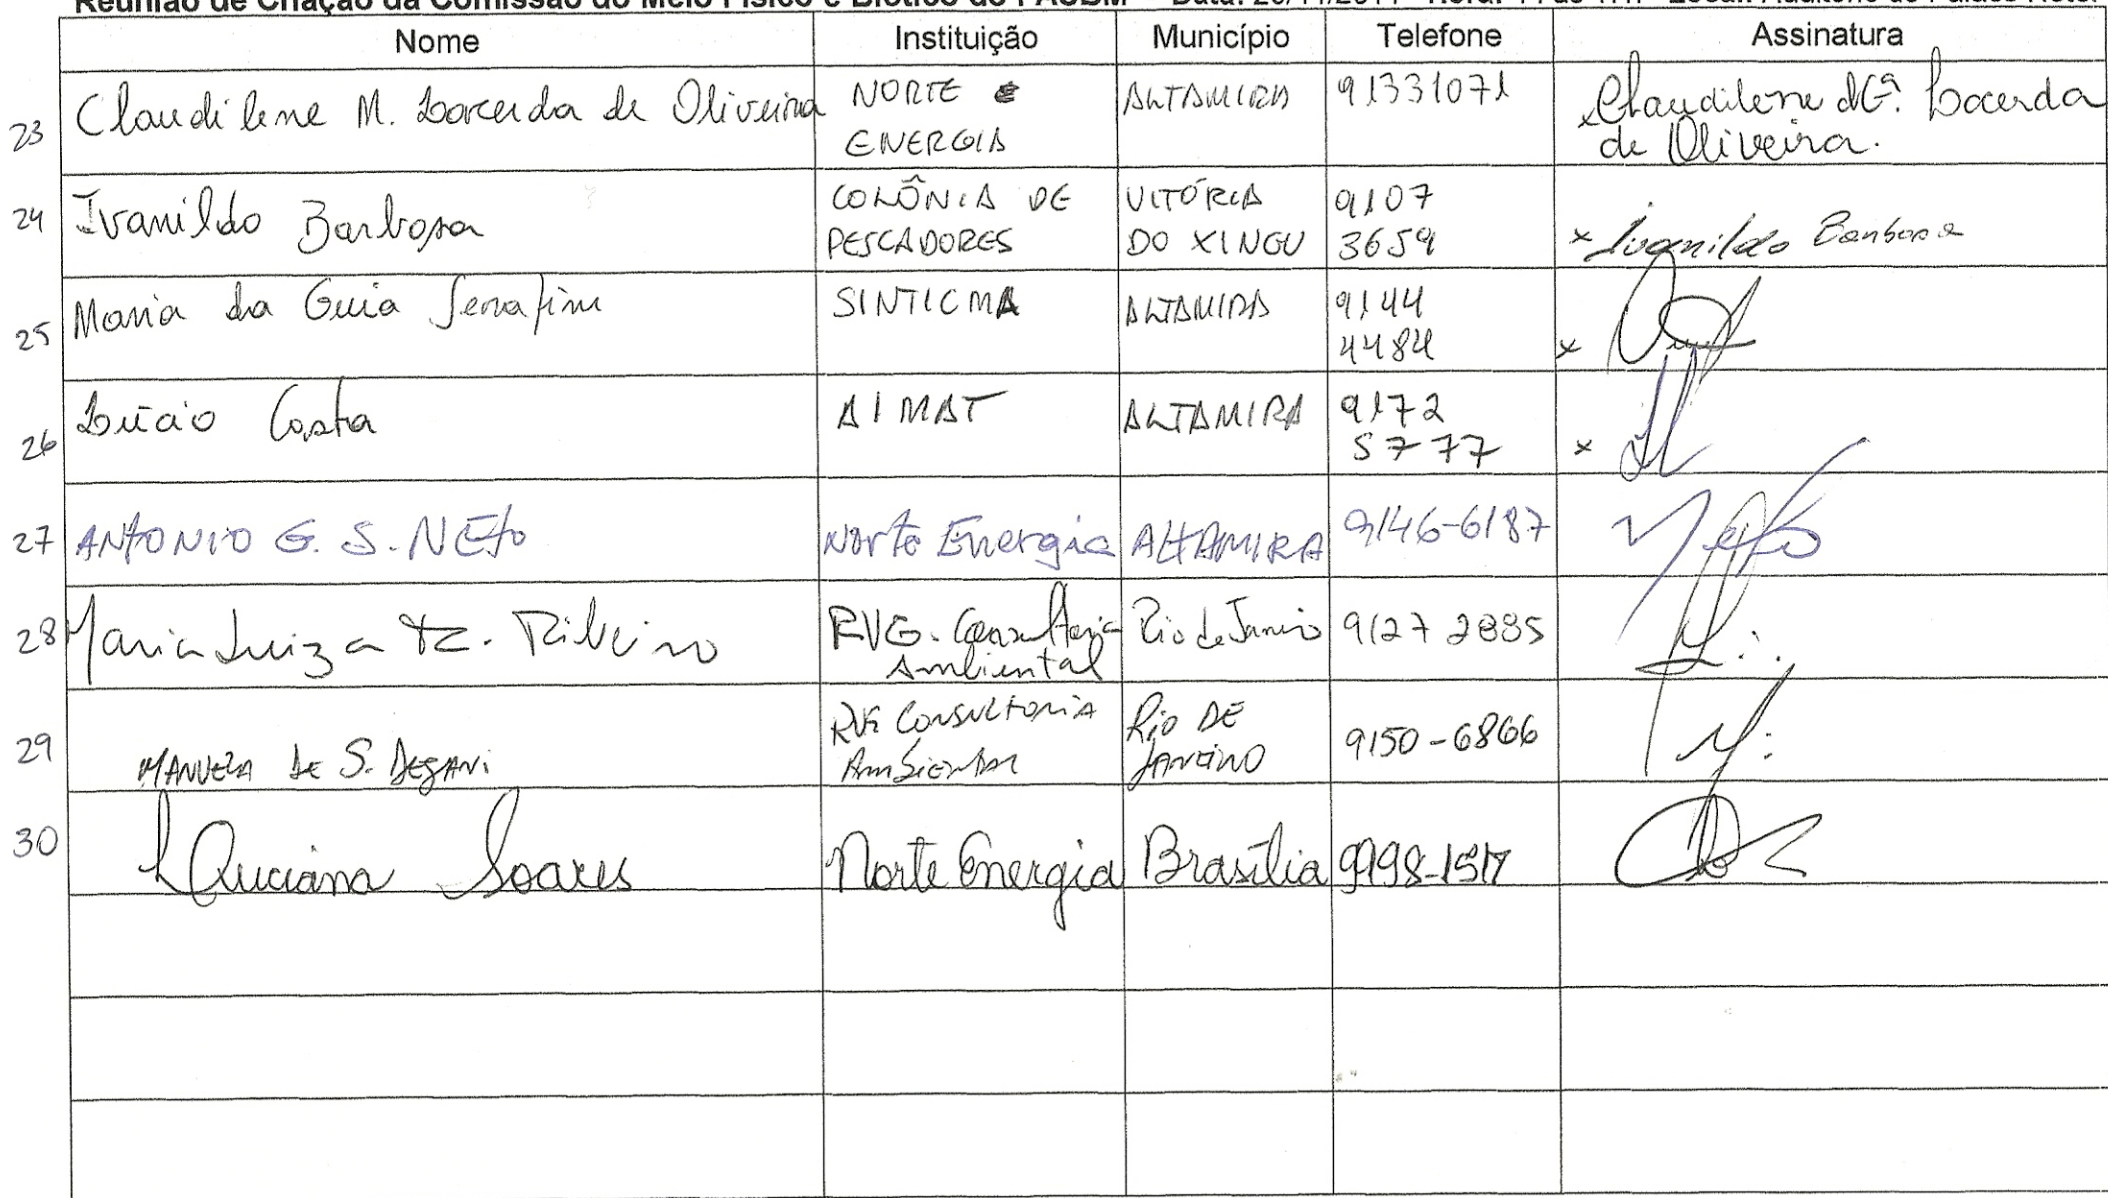 Nome Instituição Município Telefone Assinatura
23 Claudilene M. Lacerda de Oliveira NORTE ENERGIA ALTAMIRA 91331071 x Claudilene Mª. Lacerda de Oliveira.
24 Ivanildo Barbosa COLÔNIA DE PESCADORES VITÓRIA DO XINGU 9107 3659 x Ivanildo Barbosa
25 Maria da Guia Serafim SINTICMA ALTAMIRA 9144 4484 x
26 Lúcio Costa AIMAT ALTAMIRA 9172 5777 x
27 ANTONIO G. S. NETO Norte Energia ALTAMIRA 9146-6187 Neto
28 Maria Luiza R. Ribeiro RVG. Consultoria Ambiental Rio de Janeiro 9127 2885
29 MANUELA DE S. DEGANI Consultoria Ambiental Rio DE JANEIRO 9150-6866
30 Luciana Soares Norte Energia Brasília